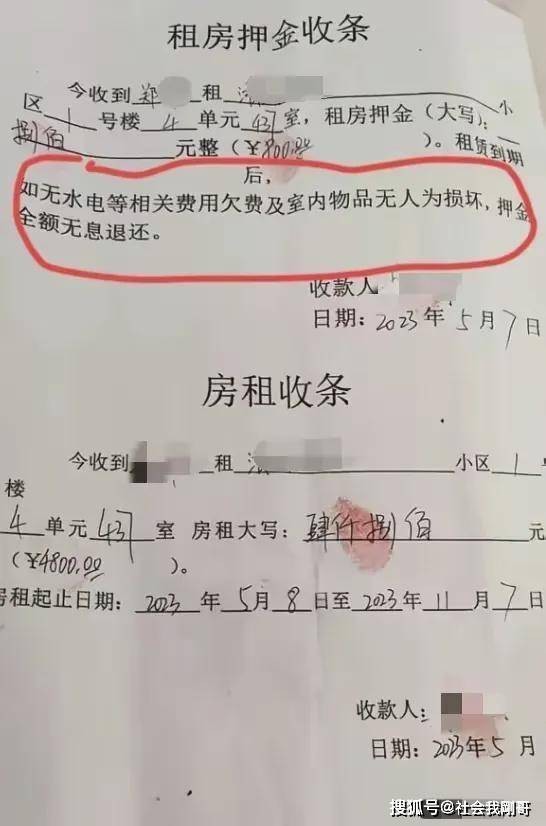 租房押金收条
今收到郑 租 小
区 1 号楼 4 单元 437 室，租房押金（大写）：
捌佰 元整（¥800.00 ）。租赁到期
后，
如无水电等相关费用欠费及室内物品无人为损坏，押金
全额无息退还。
收款人
日期：2023年5月7日
房租收条
今收到 租 小区 1
楼
4 单元 437 室 房租大写：肆仟捌佰 元
（¥4800.00 ）。
房租起止日期：2023 年 5 月 8 日至 2023 年 11 月 7 日
收款人：
日期：2023年5月
搜狐号@社会我刚哥